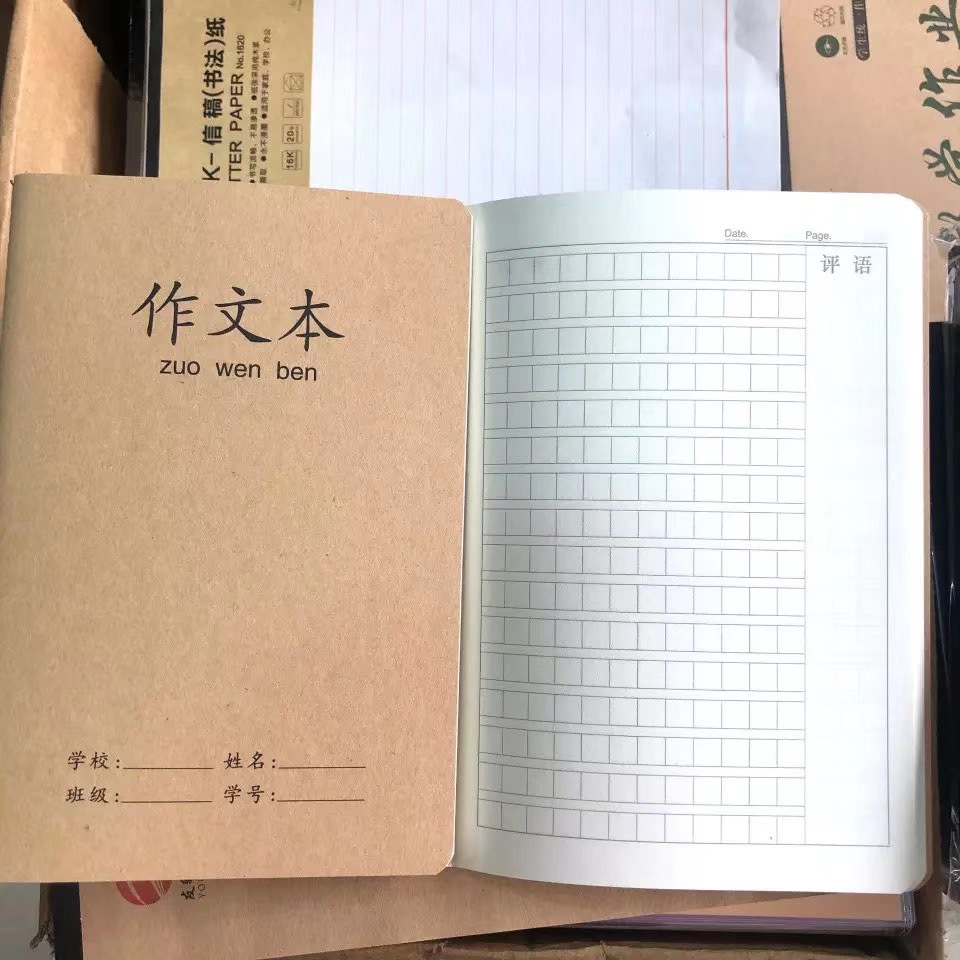 K-信稿(书法)纸
TTER PAPER No.1620
16K
20
学生统一作
学作业
作文本
zuo wen ben
学校:
姓名:
班级:
学号:
Date.
Page.
评语